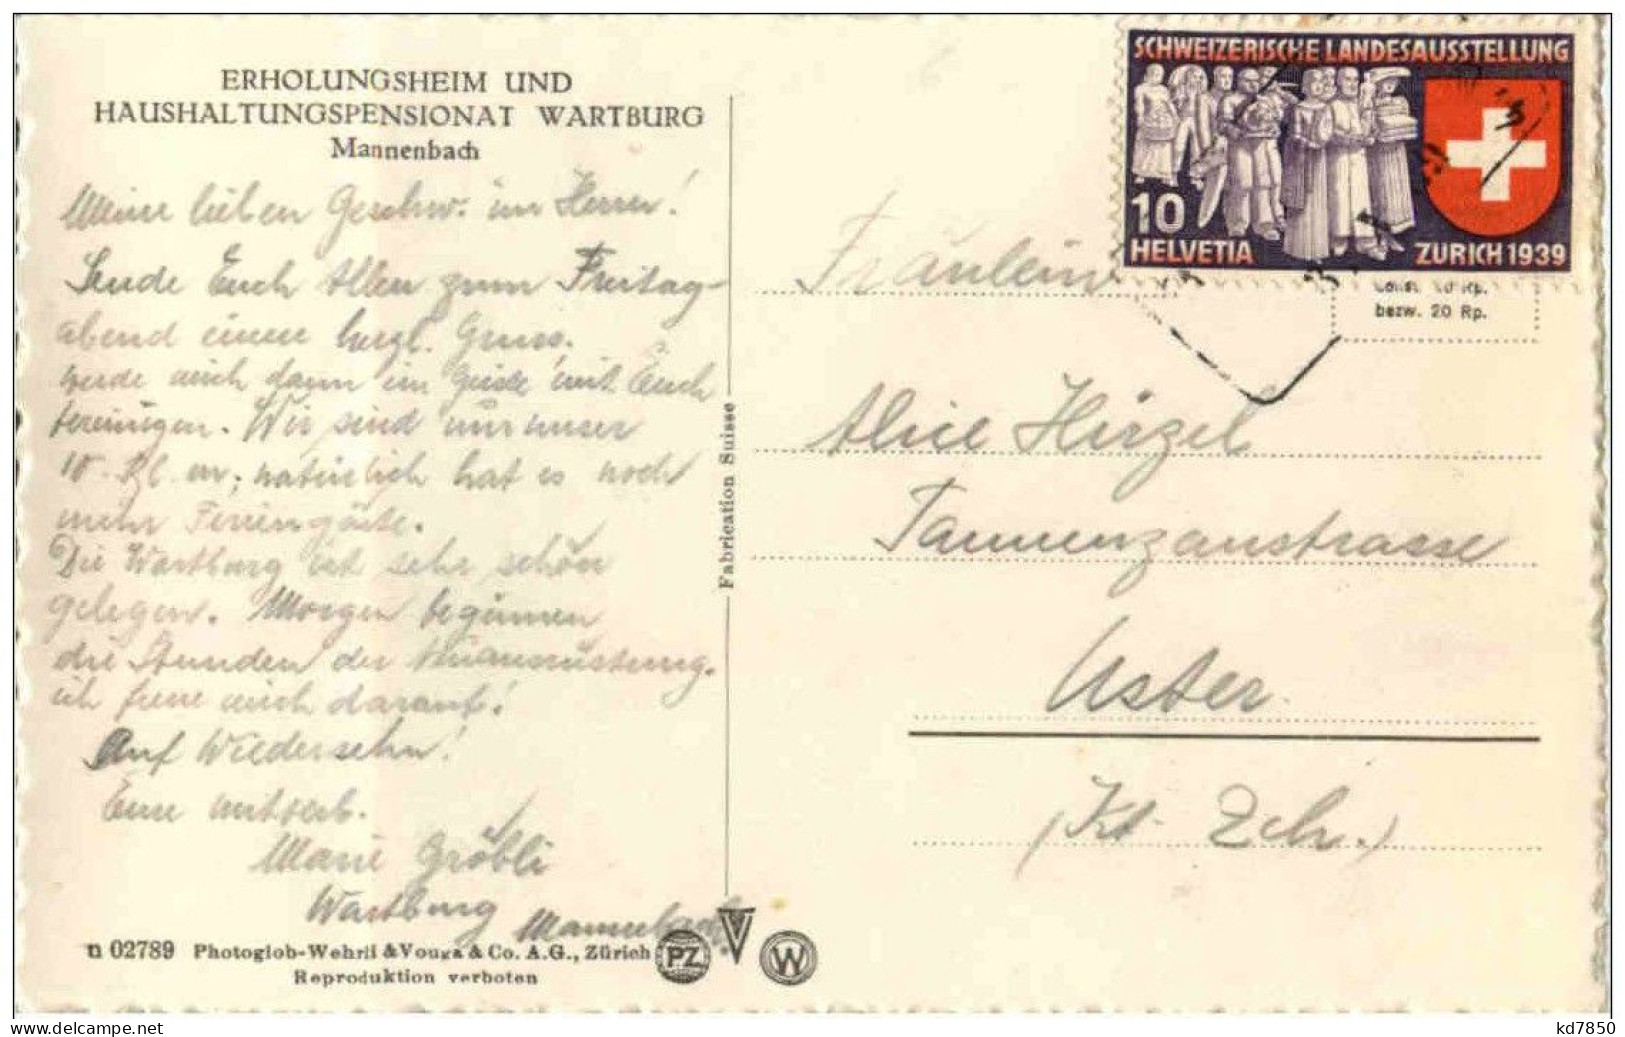 ERHOLUNGSHEIM UND
HAUSHALTUNGSPENSIONAT WARTBURG
Mannenbach
Meine lieben Geschw. im Herrn!
Sende Euch Allen zum Freitag-
abend einen herzl. Gruss.
werde mich dann im Geiste mit Euch
vereinigen. Wir sind nur unser
10 natürlich hat es noch
mehr Feriengäste.
Die Wartburg ist sehr schön
gelegen. Morgen beginnen
die Stunden der
ich freue mich darauf!
Auf Wiedersehn!
Eure mitverb.
Marie Gröbli
Wartburg Mannenbach.
n 02789 Photoglob-Wehrli & Vouga & Co. A.G., Zürich
Reproduktion verboten
PZ V W
Fabrication Suisse
SCHWEIZERISCHE LANDESAUSSTELLUNG
10
HELVETIA ZURICH 1939
bezw. 20 Rp.
Fräulein
Alice Hirzel
Tannenzaunstrasse
Uster.
(Kt. Zch.)
www.delcampe.net
kd7850